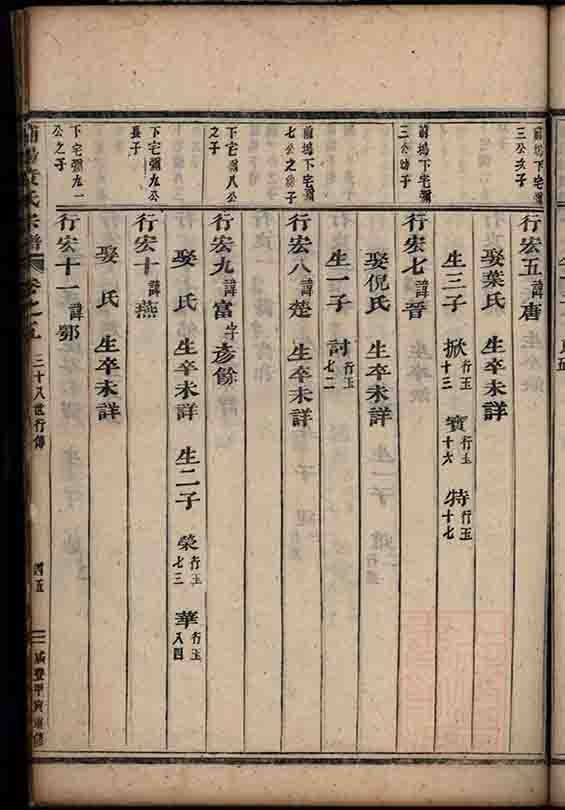 前塢下宅彌
三公次子
行宏五諱唐
娶葉氏 生卒未詳
生三子 掀行玉十三 寳行玉十六 特行玉十七
前塢下宅彌
三公幼子
行宏七諱晉
娶倪氏 生卒未詳
生一子 討行玉七二
前塢下宅彌
七公之幼子
行宏八諱楚 生卒未詳
下宅彌八公
之子
行宏九諱富字彥餘
娶 氏 生卒未詳 生二子 榮行玉七三 華行玉八四
下宅彌九公
長子
行宏十諱燕
娶 氏 生卒未詳
下宅彌九一
公之子
行宏十一諱鄂
氏宗譜 卷之五 三十八世行傳 四五 咸豐甲寅重修